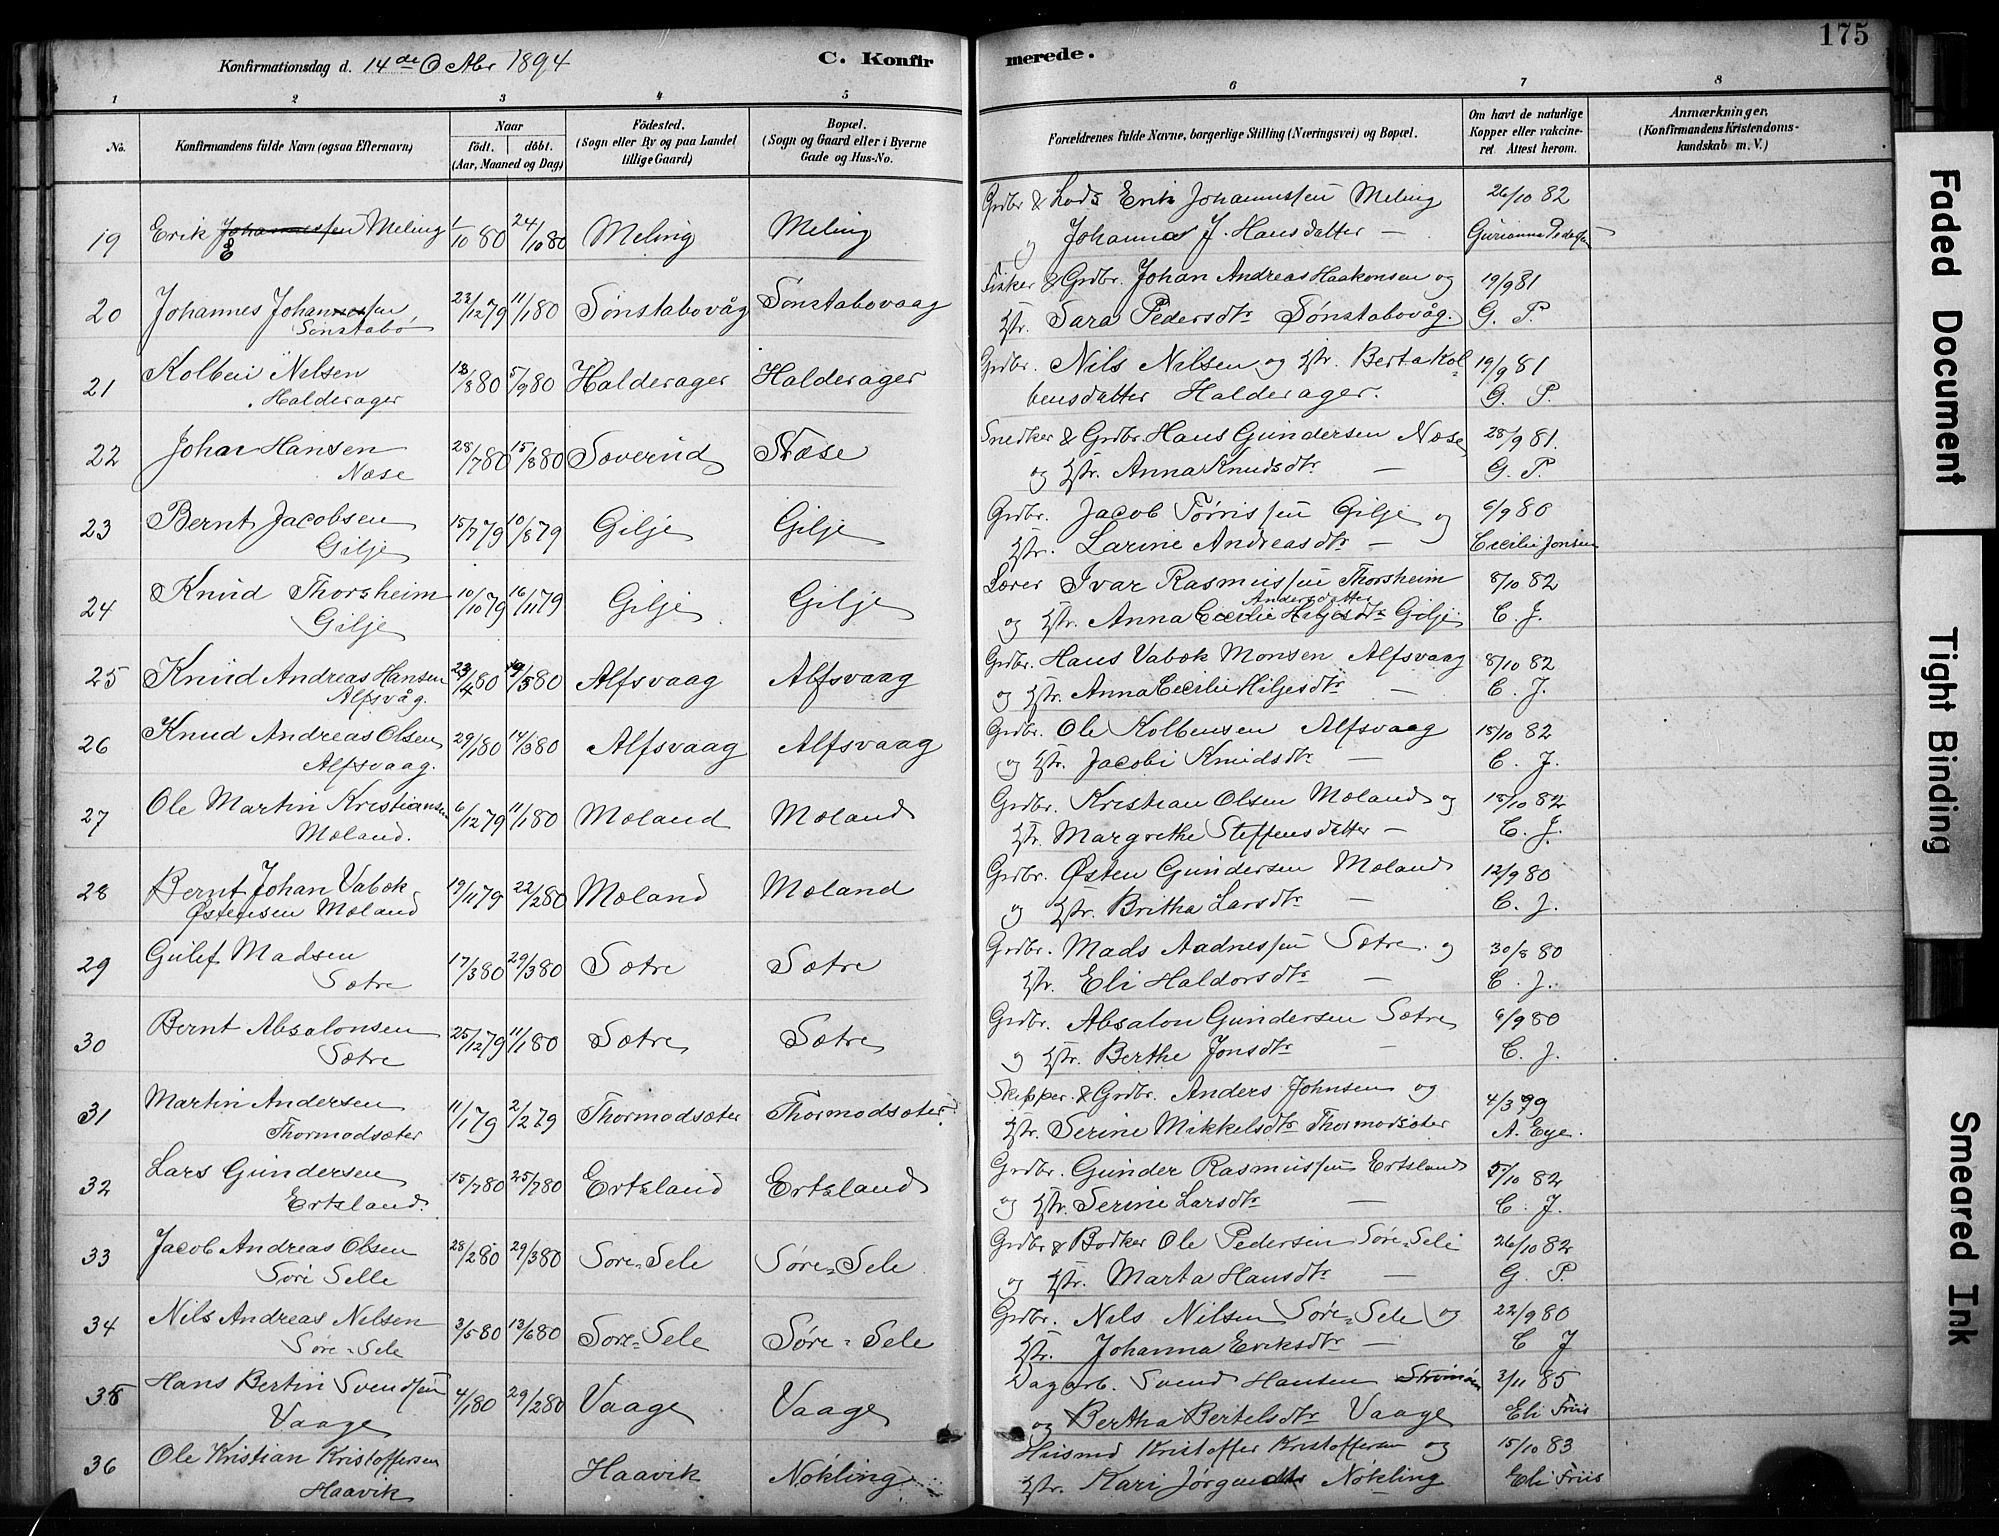 175
Konfirmationsdag d. 14de Octbr 1894
C. Konfirmerede.
1 2 3 4 5 6 7 8
No.
Konfirmandens fulde Navn (ogsaa Efternavn)
Naar
født. døbt.
(Aar, Maaned og Dag)
Fødested.
(Sogn eller By og paa Landet
tillige Gaard)
Bopæl.
(Sogn og Gaard eller i Byerne
Gade og Hus-No.
Forældrenes fulde Navne, borgerlige Stilling (Næringsvei) og Bopæl.
Om havt de naturlige
Kopper eller vakcine-
ret. Attest herom.
Anmærkninger,
(Konfirmandens Kristendoms-
kundskab m. V.)
19 Erik Johannessen Meling 1/10 80 24/10 80 Meling Meling
E
Grdbr & Lods Erik Johannessen Meling 26/10 82
og Johanna J. Hansdatter — Gurianna Pedersen
20 Johannes Johannessen 23/12 79 11/1 80 Sønstabovåg Sønstabovaag
Sønstabø
Fisker & Grdbr. Johan Andreas Haakonsen og 19/9 81
Hstr. Sara Pedersdtr Sønstabovåg. G. P.
21 Kolben Nilsen 13/8 80 5/9 80 Halderager Halderager
Halderager
Grdbr. Nils Nilsen og Hstr. Berta Kol= 19/9 81
bensdatter Halderager. G. P.
22 Johan Hansen 28/7 80 15/8 80 Sæverud Næse
Næse
Snedker & Grdbr Hans Gundersen Næse 28/9 81.
og Hstr. Anna Knudsdtr — G. P.
23 Bernt Jacobsen 15/7 79 10/8 79 Gilje Gilje
Gilje
Grdbr. Jacob Tørrissen Gilje og 6/9 80
Hstr. Larine Andreasdtr — Cecilie Jonsen
24 Knud Thorsheim 10/10 79 16/11 79 Gilje Gilje
Gilje
Lærer Ivar Rasmussen Thorsheim 8/10 82
Andersdatter
og Hstr. Anna Cecilie Hiljesdtr Gilje C. J.
25 Knud Andreas Hansen 23/4 80 19/5 80 Alfsvaag Alfsvaag
Alfsvåg.
Grdbr. Hans Vabøk Monsen Alfsvaag 8/10 82
og Hstr. Anna Cecilie Hiljesdtr — C. J.
26 Knud Andreas Olsen 29/1 80 14/3 80 Alfsvaag Alfsvaag
Alfsvaag.
Grdbr. Ole Kolbensen Alfsvaag 18/10 82
og Hstr. Jacobi Knudsdtr — C. J.
27 Ole Martin Kristiansen 6/12 79 11/1 80 Mæland Mæland
Mæland.
Grdbr. Kristian Olsen Mæland og 18/10 82
Hstr. Margrethe Steffensdatter — C. J.
28 Bernt Johan Vabøk 19/11 79 22/2 80 Mæland Mæland
Østensen Mæland
Grdbr. Østen Gundersen Mæland 12/9 80
og Hstr. Britha Larsdtr — C. J.
29 Gulef Madsen 17/3 80 29/3 80 Sætre Sætre
Sætre
Grdbr. Mads Aadnessen Sætre og 30/8 80
Hstr. Eli Haldorsdtr — C. J.
30 Bernt Absalonsen 25/12 79 11/1 80 Sætre Sætre
Sætre
Grdbr. Absalon Gundersen Sætre 6/9 80
og Hstr. Berthe Jonsdtr — C. J.
31 Martin Andersen 11/1 79 2/2 79 Thormodsæter Thormodsæter
Thormodsæter
Skipper & Grdbr. Anders Johnsen og 4/3 79
Hstr. Serine Mikkelsdtr Thormodsæter A. Eye.
32 Lars Gundersen 15/7 80 25/7 80 Ertsland Ertsland
Ertsland.
Grdbr. Gunder Rasmussen Ertsland 5/10 82
og Hstr. Serine Larsdtr — C. J.
33 Jacob Andreas Olsen 28/2 80 29/3 80 Søre=Sele Søre=Sele
Søre Selle
Grdbr & Bødker Ole Pedersen Søre=Sele 26/10 82
og Hstr. Marta Hansdtr — G. P.
34 Nils Andreas Nilsen 3/5 80 13/6 80 Søre=Sele Søre=Sele
Søre=Sele
Grdbr. Nils Nilsen Søre=Sele og 22/9 80
Hstr. Johanna Eriksdtr — C J
35 Hans Bertin Svendsen 4/1 80 29/2 80 Vaage Vaage
Vaage
Dagarb. Svend Hansen Strømøen 2/11 85
og Bertha Bertelsdtr Vaage Eli Friis
36 Ole Kristian Kristoffersen Haavik Nøkling
Haavik
Husmd Kristoffer Kristoffersen og 15/10 83
Hstr. Kari Jørgensdtr Nøkling Eli Friis
Faded Document
Tight Binding
Smeared Ink